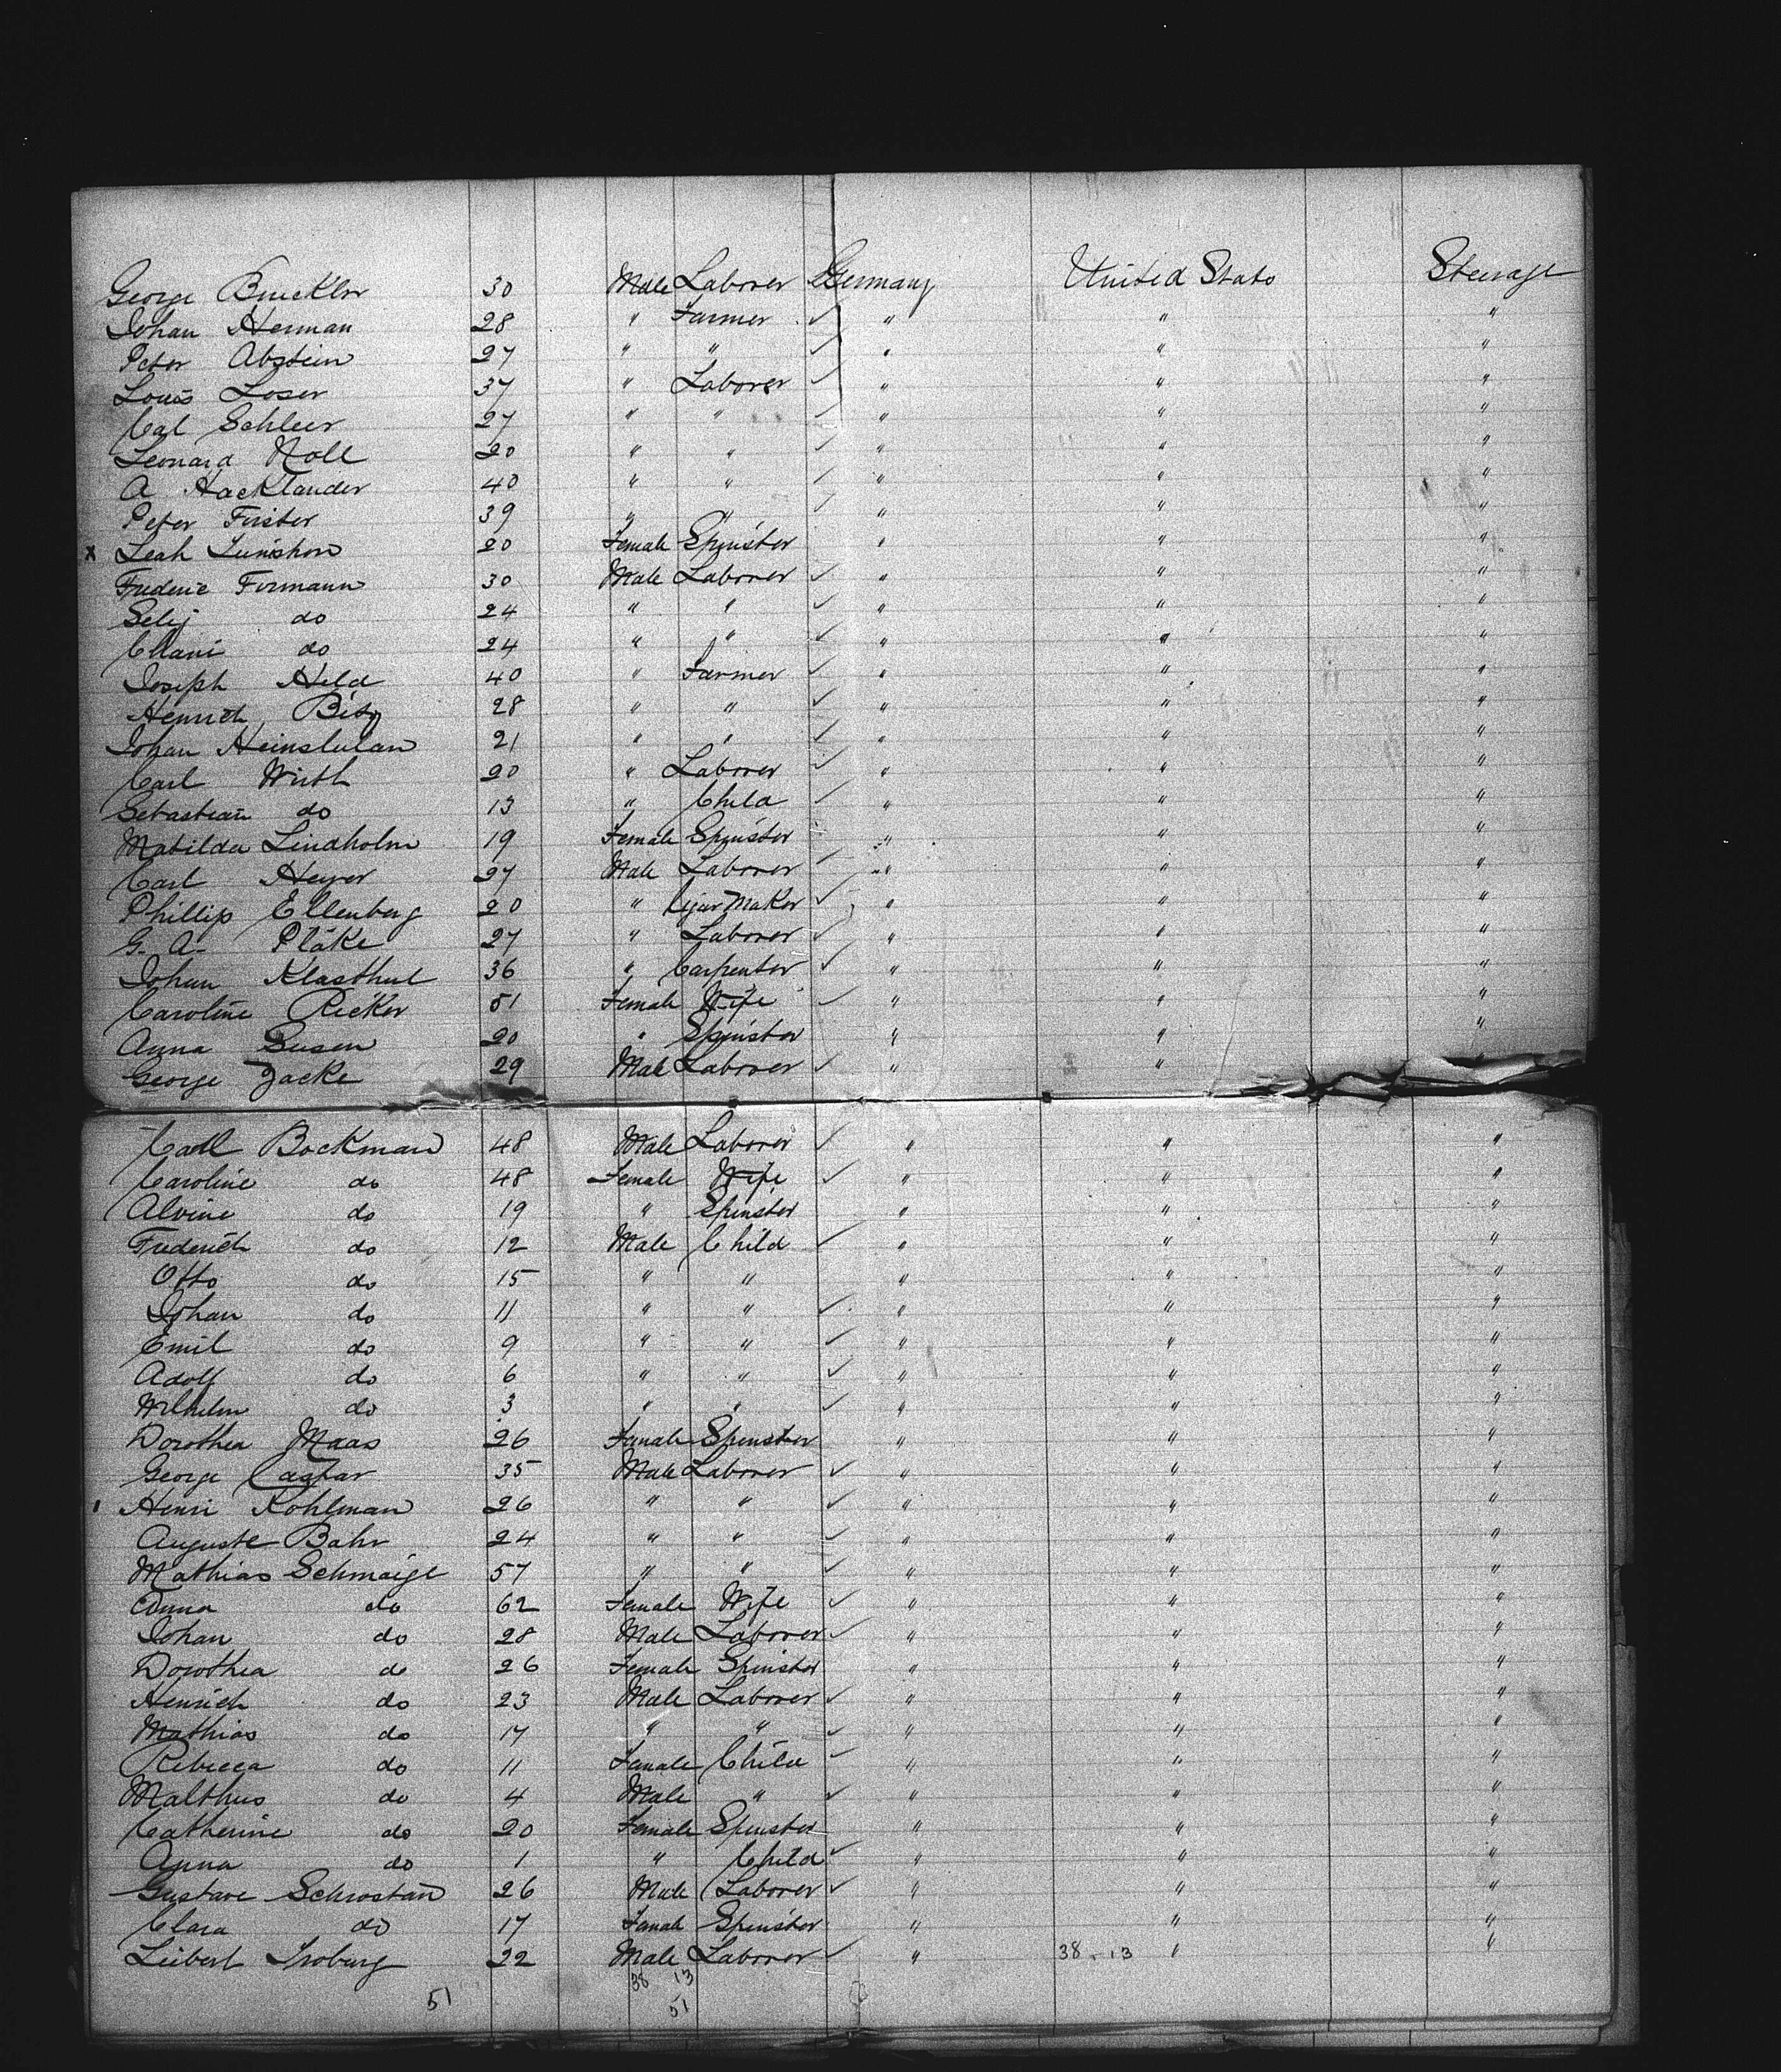 George Bruckler 30 Male Laborer Germany United States Steerage
Johan Herman 28 " Farmer ✓ " " "
Peter Abstein 27 " " ✓ " " "
Louis Loser 37 " Laborer ✓ " " "
Cal Schleer 27 " " ✓ " " "
Leonard Noll 20 " " ✓ " " "
A Hacklander 40 " " ✓ " " "
Peter Forster 39 " " ✓ " " "
x Leah 20 Female Spinster " " "
Frederic Formann 30 Male Laborer ✓ " " "
Selij do 24 " " ✓ " " "
Chani do 24 " " ✓ " " "
Joseph Held 40 " Farmer ✓ " " "
Henrich 28 " " ✓ " " "
Johan 21 " " ✓ " " "
Carl Wirth 20 " Laborer ✓ " " "
Sebastian do 13 " Child ✓ " " "
Matilda Lindholm 19 Female Spinster " " "
Carl Heyer 27 Male Laborer ✓ " " "
Phillip Ellenberg 20 " Cigar Maker ✓ " " "
G. A. Pläke 27 " Laborer ✓ " " "
Johan Klasthul 36 " Carpenter ✓ " " "
Caroline Ricker 51 Female Wife ✓ " " "
Anna Susen 20 " Spinster " " "
George Jacke 29 Male Laborer ✓ " "
Carl Bockman 48 Male Laborer ✓ " " "
Caroline do 48 Female Wife ✓ " " "
Alvine do 19 " Spinster " " "
Frederich do 12 Male Child ✓ " " "
Otto do 15 " " " " "
Johan do 11 " " ✓ " " "
Emil do 9 " " ✓ " " "
Adolf do 6 " " ✓ " " "
Wilhelm do 3 " " ✓ " " "
Dorothea Maas 26 Female Spinster " " "
George Caspar 35 Male Laborer ✓ " " "
Henri Kohlman 26 " " ✓ " " "
Auguste Bahr 24 " " ✓ " " "
Mathias Schmaigl 57 " " ✓ " " "
Anna do 62 Female Wife ✓ " " "
Johan do 28 Male Laborer ✓ " " "
Dorothea do 26 Female Spinster " " "
Henrich do 23 Male Laborer ✓ " " "
Mathias do 17 " " ✓ " " "
Rebecca do 11 Female Child ✓ " " "
Malthus do 4 Male " ✓ " " "
Catherine do 20 Female Spinster " " "
Anna do 1 " Child ✓ " " "
Gustave Schrostan 26 Male Laborer ✓ " " "
Clara do 17 Female Spinster " " "
Liebert Isoburg 22 Male Laborer ✓ " 38 . 13 " "
38 13
51 51